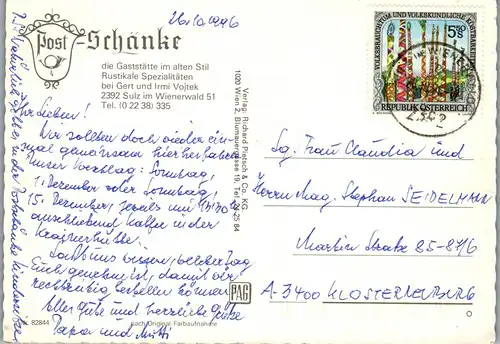 26.10.1996
Post-Schänke
die Gaststätte im alten Stil
Rustikale Spezialitäten
bei Gert und Irmi Vojtek
2392 Sulz im Wienerwald 51
Tel. (0 22 38) 335
Ihr Lieben!
Wir sollten doch wieder ein-
mal gemeinsam hier
Unser Vorschlag: Sonntag,
1. Dezember oder Sonntag,
15. Dezember, jeweils um
anschließend Kaffee in der
Krainerhütte.
Laßt uns wissen, welcher Tag
Euch genehm ist, damit wir
rechtzeitig bestellen können
Alles Gute und herzliche Grüße
Papa und Mutti
in der Postschänke
Verlag: Richard Pietsch & Co. KG.
1020 Wien 2, Blumauergasse 19, Tel.
PAG
82844
nach Original Farbaufnahme
VOLKSBRAUCHTUM UND VOLKSKUNDLICHE KOSTBARKEITEN
REPUBLIK ÖSTERREICH
Sg. Frau Claudia und
Herrn Mag. Stephan SEIDELMANN
Martin Straße 85-87/6
A-3400 KLOSTERNEUBURG